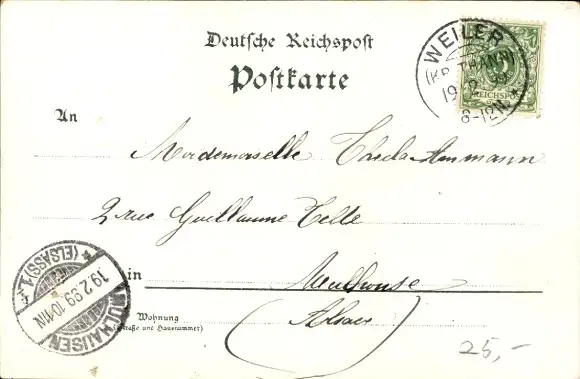 Deutsche Reichspost
Postkarte
WEILER
(KR. THANN)
19 2 99
8-12N.
REICHSPOST
An
Mademoiselle Theela Ammann
2 rue Guillaume Telle
in
Mulhouse
(Alsace)
Wohnung
(Straße und Hausnummer)
MÜLHAUSEN
19.2.99.10-11N
* (ELSASS) 1. *
25,-